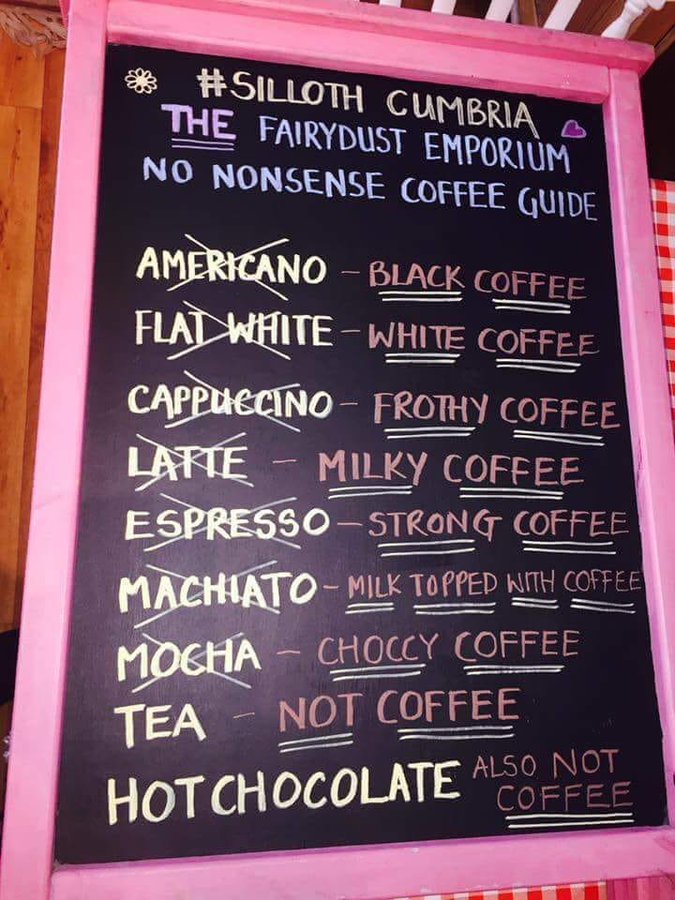 #SILLOTH CUMBRIA
THE FAIRYDUST EMPORIUM
NO NONSENSE COFFEE GUIDE
AMERICANO - BLACK COFFEE
FLAT WHITE - WHITE COFFEE
CAPPUCCINO - FROTHY COFFEE
LATTE - MILKY COFFEE
ESPRESSO - STRONG COFFEE
MACHIATO - MILK TOPPED WITH COFFEE
MOCHA - CHOCCY COFFEE
TEA - NOT COFFEE
HOT CHOCOLATE ALSO NOT
COFFEE